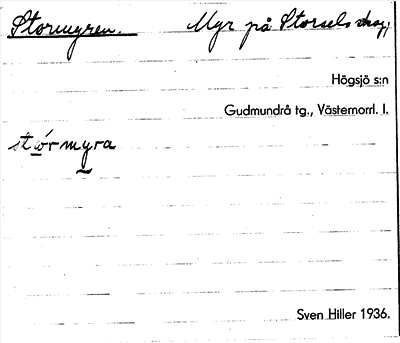 Stormyren. Myr på Storsels skog,
Högsjö s:n
Gudmundrå tg., Västernorrl. l.
stórmyra
Sven Hiller 1936.